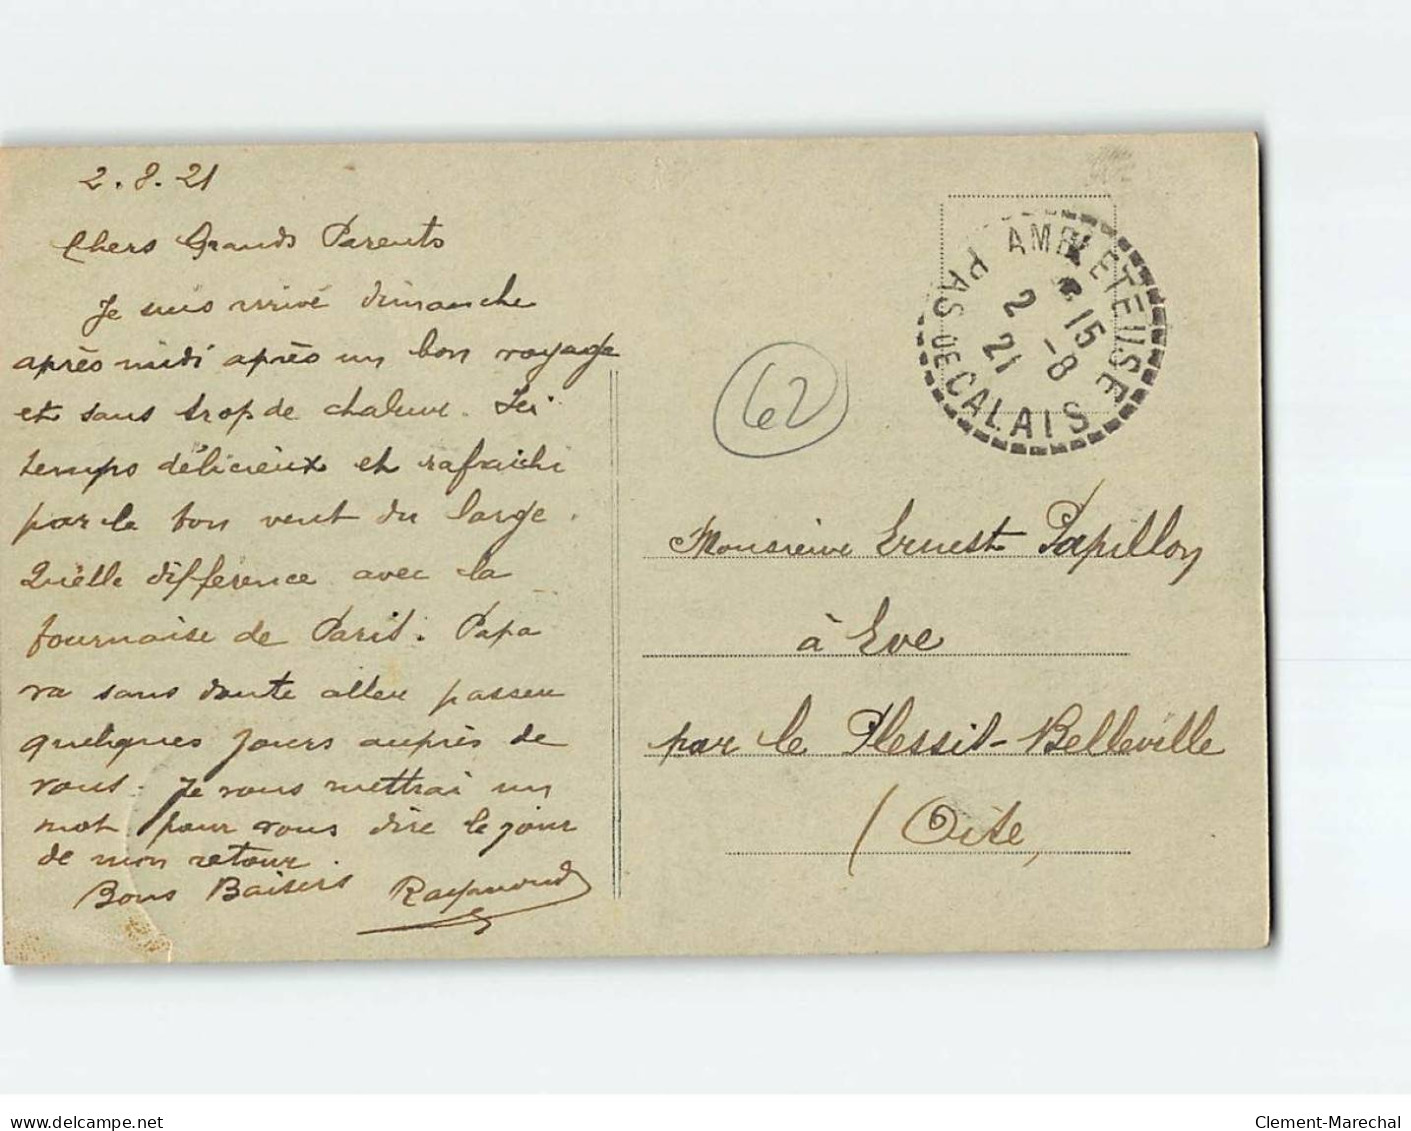 2.8.21
Chers Grands Parents
Je suis arrivé dimanche
après midi après un bon voyage
et sans trop de chaleur. Ici
temps délicieux et rafraichi
par le bon vent du large.
Quelle différence avec la
fournaise de Paris. Papa
va sans doute aller passer
quelques jours auprès de
vous. Je vous mettrai un
mot pour vous dire le jour
de mon retour.
Bons Baisers Raymond
62
AMBLETEUSE
15
2 -8
21
PAS DE CALAIS
Monsieur Ernest Papillon
à Eve
par le Plessis-Belleville
(Oise,
delcampe.net
Clement-Marechal